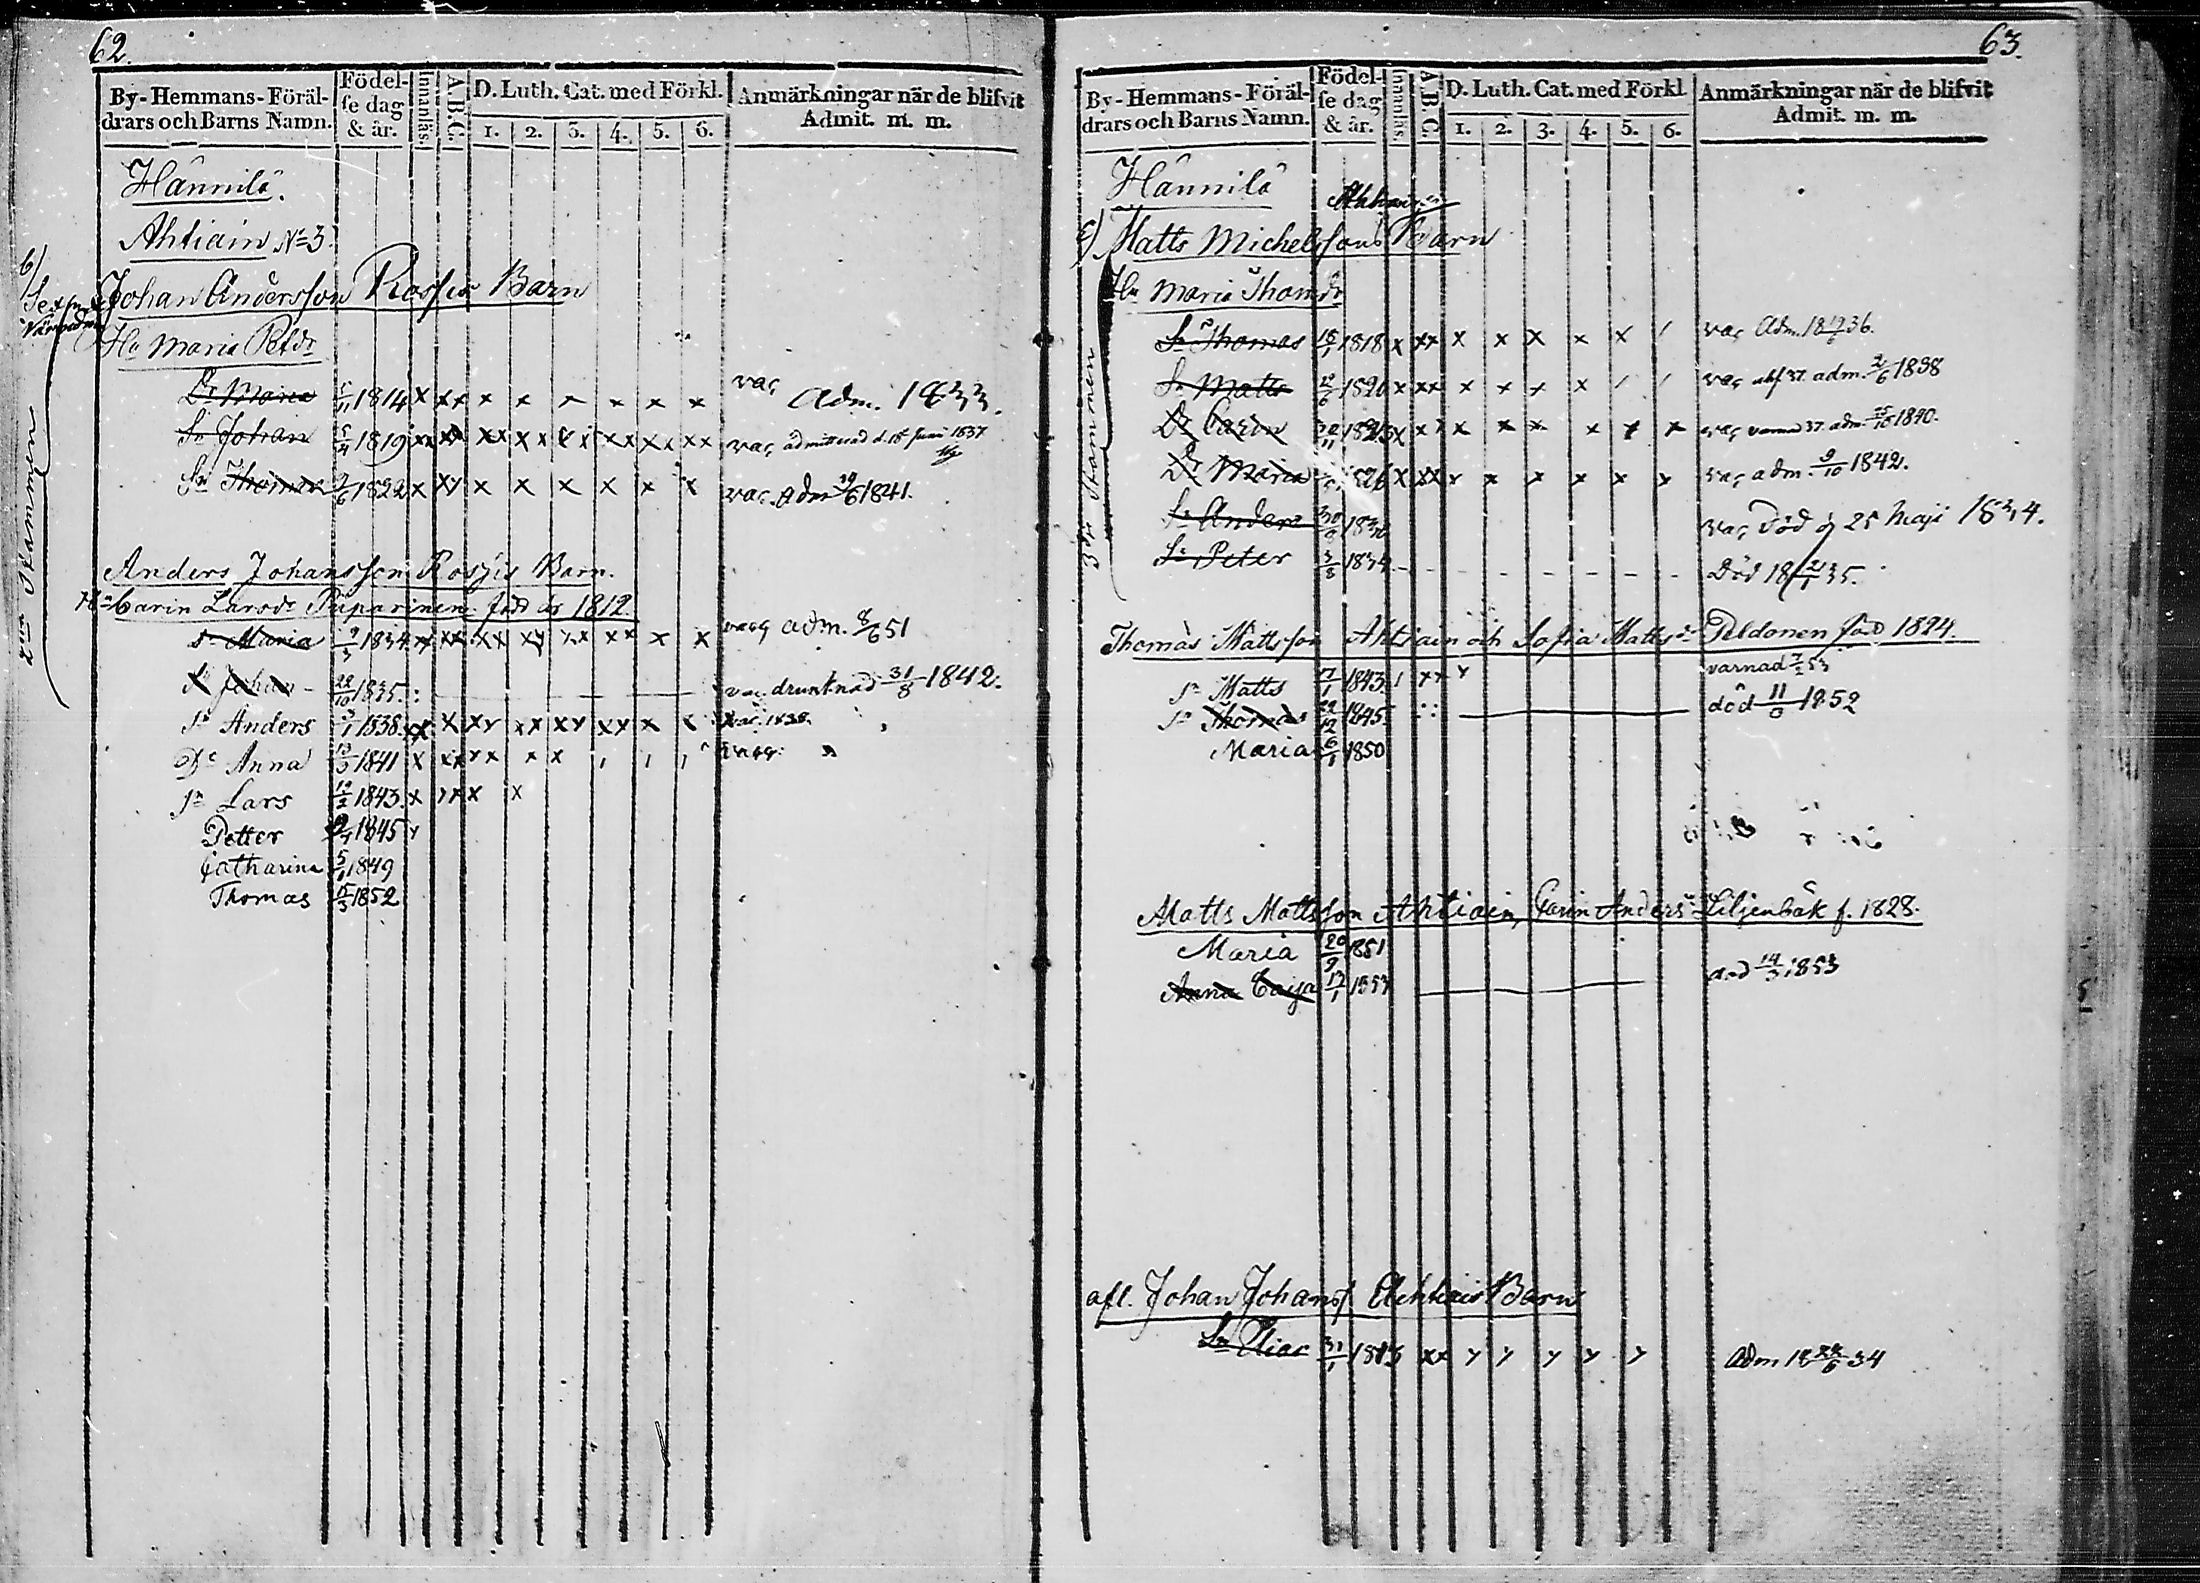 62.
By-Hemmans-Föräl-
drars och Barns Namn.
Födel-
se dag
& år.
Innanläs.
A.B.C.
D. Luth. Cat. med Förkl.
1. 2. 3. 4. 5. 6.
Anmärkningar när de blifvit
Admit. m. m.
Hännilä.
Ahtiain No 3
b)
Johan Andersson Rossis Barn
Hu Maria Petdr
2dra Stammen
Dr Maria 5/11 1814 x xx x x x x x x vac. adm. 1833.
Sn Johan 5/4 1819 xx xx xx xx xx xx xx xx vac. admitterad d. 18 Juni 1837
Sn Thomas 2/6 1822 x xy x x x x x x vac. adm 19/6 1841.
Anders Johansson Rossis Barn.
Hu Carin Larsdr Puparinen född år 1812.
Dr Maria 9/3 1834 x xx xx xy xx xx x x vacc adm. 8/6 51
Sn Johan 22/10 1835. vac. drunknad 31/8 1842.
Sn Anders 3/1 1838 xx x xy xx xy xy x x vac. 1838.
Dr Anna 13/3 1841 x xx xx x x vacc. "
Sn Lars 12/2 1843. x xx x x
Petter 1845 y
Catharina 5/1 1849
Thomas 15/3 1852
63.
By-Hemmans-Föräl-
drars och Barns Namn.
Födel-
se dag
& år.
Innanläs.
A.B.C.
D. Luth. Cat. med Förkl
1. 2. 3. 4. 5. 6.
Anmärkningar när de blifvit
Admit. m. m.
Hännilä Ahtiain
c) Matts Michelssons Barn
Hu Maria Thomdr
3dje Stammen
Sn Thomas 1818 x xx x x x x x / vac Adm. 36.
Sn Matts 1820 x xx x x x x / / vac adm. 2/6 1838
Dr Carin 1823 x x x x x x x x vac adm. 1840.
Dr Maria 1826 x xx x x x x x y vac adm 9/10 1842.
Sn Anders 30/8 vac Död 25 Maji 1834.
Sn Peter 3/8 1834 Död 35.
Thomas Mattsson Ahtiain och Sofia Mattsdr Peldonen född 1824.
Sn Matts 7/1 1843 1 xx y varnad 7/2 53
Sn Thomas 1845 död 11/8 1852
Maria 6/1 1850
Matts Mattsson Ahtiain, Carin Andersdr Liljenbäk f. 1828.
Maria 20/9 1851
Anna Caisa 17/1 1853 död 14/3 1853
afl. Johan Johanss Achtiais Barn
Sn Elias 31/1 xx y y y y y Adm 34